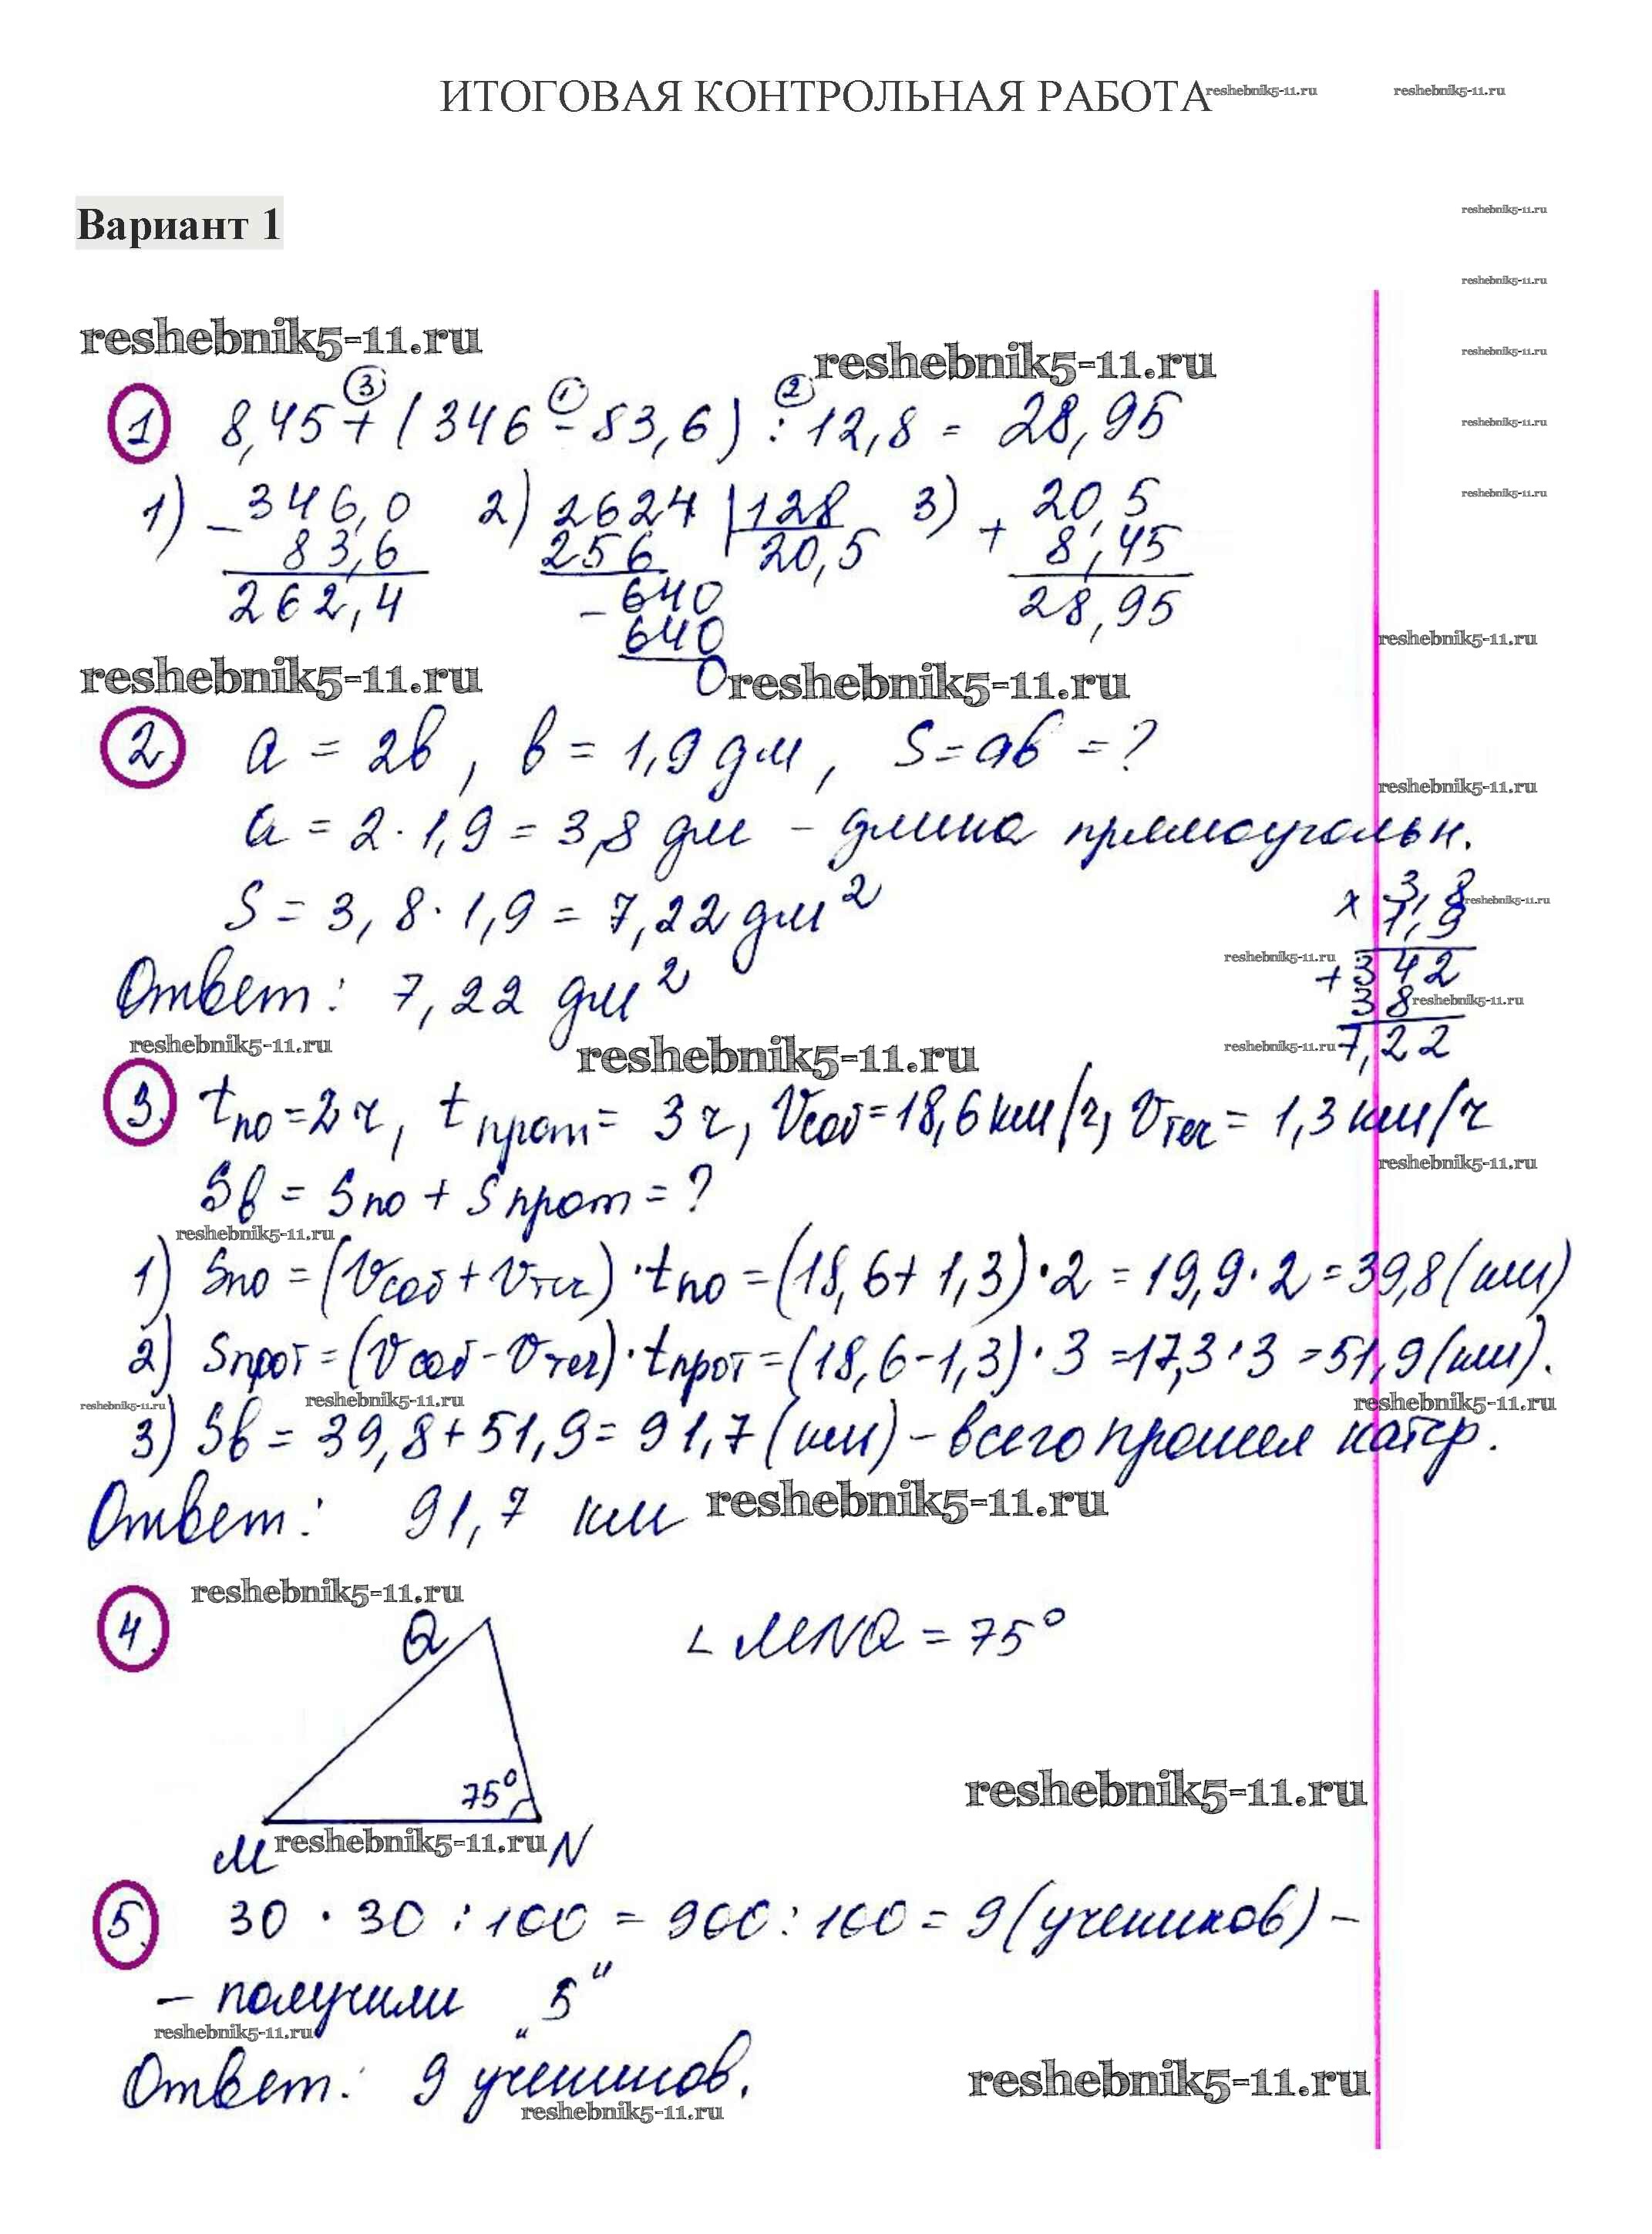 ИТОГОВАЯ КОНТРОЛЬНАЯ РАБОТА reshebnik5-11.ru reshebnik5-11.ru
Вариант 1 reshebnik5-11.ru
reshebnik5-11.ru
reshebnik5-11.ru reshebnik5-11.ru reshebnik5-11.ru
3 1 2
1 8,45 + (346 - 83,6) : 12,8 = 28,95 reshebnik5-11.ru
1) - 346,0 2) 2624 | 128 3) + 20,5 reshebnik5-11.ru
83,6 256 20,5 8,45
262,4 - 640 28,95
640 reshebnik5-11.ru
reshebnik5-11.ru 0 reshebnik5-11.ru
2. a = 2b, b = 1,9 дм, S = ab = ?
reshebnik5-11.ru
a = 2 · 1,9 = 3,8 дм - длина прямоугольн.
S = 3,8 · 1,9 = 7,22 дм² x 3,8 reshebnik5-11.ru
1,9
reshebnik5-11.ru + 342
Ответ: 7,22 дм² 38 reshebnik5-11.ru
reshebnik5-11.ru reshebnik5-11.ru reshebnik5-11.ru 7,22
3. tпо = 2 ч, tпрот = 3 ч, Vсоб = 18,6 км/ч, Vтеч = 1,3 км/ч
reshebnik5-11.ru
Sв = Sпо + Sпрот = ?
reshebnik5-11.ru
1) Sпо = (Vсоб + Vтеч) · tпо = (18,6 + 1,3) · 2 = 19,9 · 2 = 39,8 (км)
2) Sпрот = (Vсоб - Vтеч) · tпрот = (18,6 - 1,3) · 3 = 17,3 · 3 = 51,9 (км).
reshebnik5-11.ru reshebnik5-11.ru reshebnik5-11.ru
3) Sв = 39,8 + 51,9 = 91,7 (км) - всего прошел катер.
Ответ: 91,7 км reshebnik5-11.ru
reshebnik5-11.ru
4. Q ∠ MNQ = 75°
75° reshebnik5-11.ru
M reshebnik5-11.ru N
5. 30 · 30 : 100 = 900 : 100 = 9 (учеников) -
- получили „5“
reshebnik5-11.ru
Ответ: 9 учеников. reshebnik5-11.ru
reshebnik5-11.ru